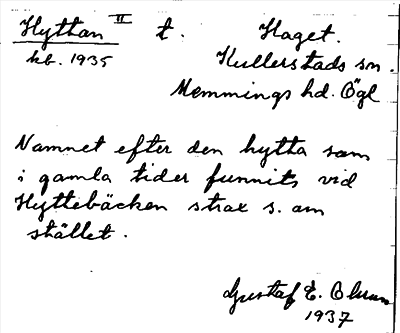 Hyttan II t. Haget.
kb. 1935 Kullerstads sn.
Memmings hd. Ögl
Namnet efter den hytta som
i gamla tider funnits vid
Hyttebäcken strax s. om
stället.
Gustaf E. Olsson
1937